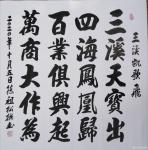 三溪凯歌飛
三溪天寶出
四海鳳凰歸
百業俱興起
萬商大作為
二〇二〇年十月五日